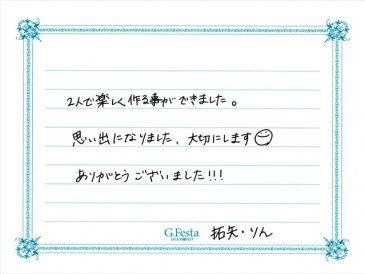 2人で楽しく作る事ができました。
思い出になりました、大切にします
ありがとうございました!!!
G.Festa
DIAMOND
拓矢・りん